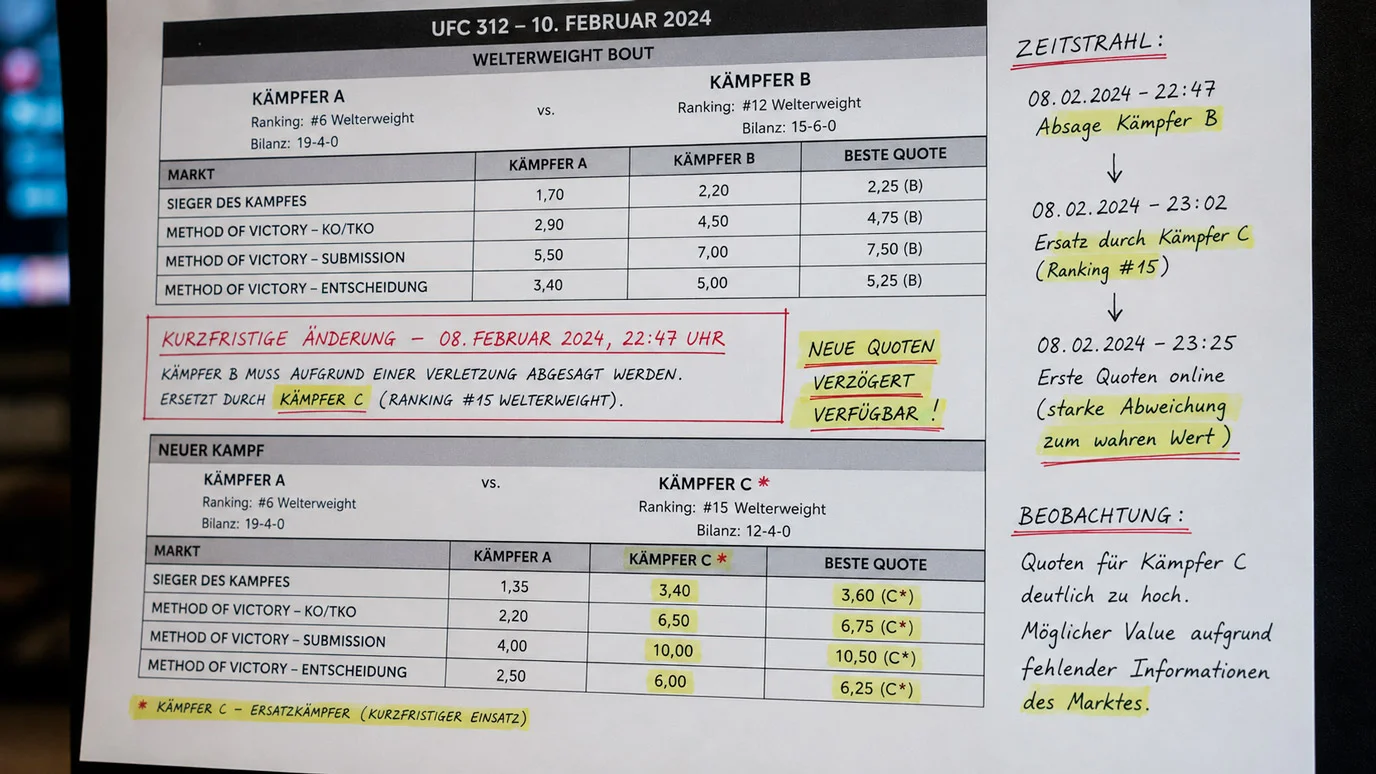 UFC 312 – 10. FEBRUAR 2024
WELTERWEIGHT BOUT
KÄMPFER A vs. KÄMPFER B
Ranking: #6 Welterweight Ranking: #12 Welterweight
Bilanz: 19-4-0 Bilanz: 15-6-0
MARKT KÄMPFER A KÄMPFER B BESTE QUOTE
SIEGER DES KAMPFES 1,70 2,20 2,25 (B)
METHOD OF VICTORY – KO/TKO 2,90 4,50 4,75 (B)
METHOD OF VICTORY – SUBMISSION 5,50 7,00 7,50 (B)
METHOD OF VICTORY – ENTSCHEIDUNG 3,40 5,00 5,25 (B)
KURZFRISTIGE ÄNDERUNG – 08. FEBRUAR 2024, 22:47 UHR
KÄMPFER B MUSS AUFGRUND EINER VERLETZUNG ABGESAGT WERDEN.
ERSETZT DURCH KÄMPFER C (RANKING #15 WELTERWEIGHT).
NEUE QUOTEN
VERZÖGERT
VERFÜGBAR !
NEUER KAMPF
KÄMPFER A vs. KÄMPFER C *
Ranking: #6 Welterweight Ranking: #15 Welterweight
Bilanz: 19-4-0 Bilanz: 12-4-0
MARKT KÄMPFER A KÄMPFER C * BESTE QUOTE
SIEGER DES KAMPFES 1,35 3,40 3,60 (C*)
METHOD OF VICTORY – KO/TKO 2,20 6,50 6,75 (C*)
METHOD OF VICTORY – SUBMISSION 4,00 10,00 10,50 (C*)
METHOD OF VICTORY – ENTSCHEIDUNG 2,50 6,00 6,25 (C*)
* KÄMPFER C – ERSATZKÄMPFER (KURZFRISTIGER EINSATZ)
ZEITSTRAHL:
08.02.2024 – 22:47
Absage Kämpfer B
↓
08.02.2024 – 23:02
Ersatz durch Kämpfer C
(Ranking #15)
↓
08.02.2024 – 23:25
Erste Quoten online
(starke Abweichung
zum wahren Wert)
BEOBACHTUNG:
Quoten für Kämpfer C
deutlich zu hoch.
Möglicher Value aufgrund
fehlender Informationen
des Marktes.